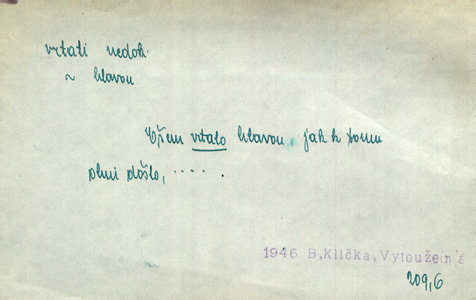 vrtati nedok.
~ hlavou
Všem vrtalo hlavou, jak k tomu
ohni došlo, .....
1946 B,Klička,Vytoužené
209,6